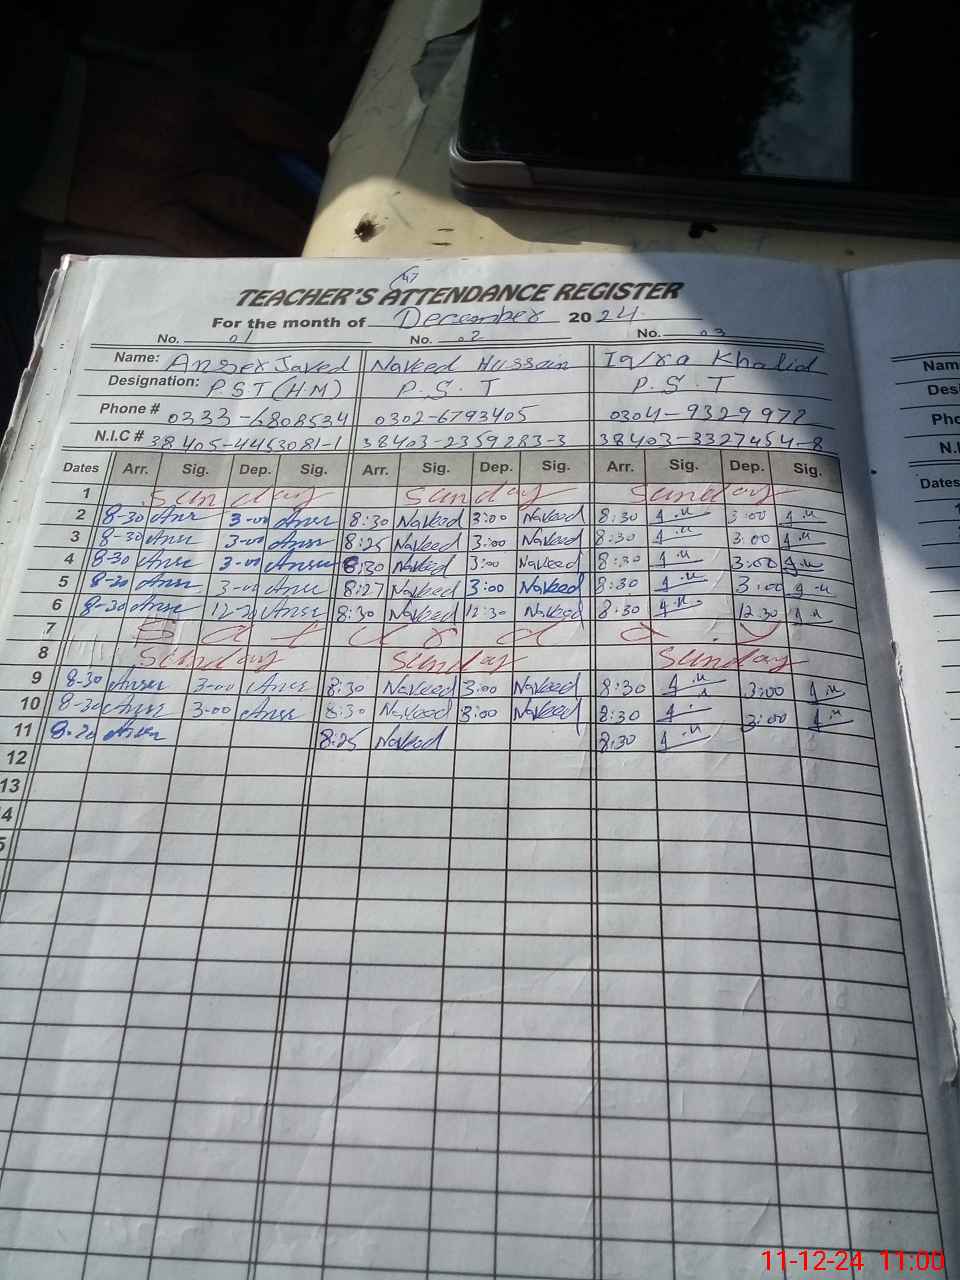 TEACHER'S ATTENDANCE REGISTER
For the month of December 2024
No. 01 No. 02 No. 03
Name: Anser Javed Naveed Hussain Iqra Khalid
Designation: P.S.T (H.M) P.S.T P.S.T
Phone # 0333-6808534 0302-6793405 0304-9329972
N.I.C # 38405-4453081-1 38403-2359283-3 38403-3327454-8
Dates Arr. Sig. Dep. Sig. Arr. Sig. Dep. Sig. Arr. Sig. Dep. Sig.
1 Sunday Sunday Sunday
2 8-30 Anser 3-00 Anser 8:30 Naveed 3:00 Naveed 8:30 3:00
3 8-30 Anser 3-00 Anser 8:25 Naveed 3:00 Naveed 8:30 3:00
4 8-30 Anser 3-00 Anser 8:30 Naveed 3:00 Naveed 8:30 3:00
5 8-30 Anser 3-00 Anser 8:27 Naveed 3:00 Naveed 8:30 3:00
6 Anser Anser 8:30 Naveed 12:30 Naveed 8:30 12:30
7 Saturday
8 Sunday Sunday Sunday
9 8-30 Anser 3-00 Anser 8:30 Naveed 3:00 Naveed 8:30 3:00
10 8-30 Anser 3-00 Anser 8:30 Naveed 3:00 Naveed 8:30 3:00
11 Anser 8:25 Naveed 8:30
12
13
Nam
Des
Pho
N.I
Dates
11-12-24 11:00